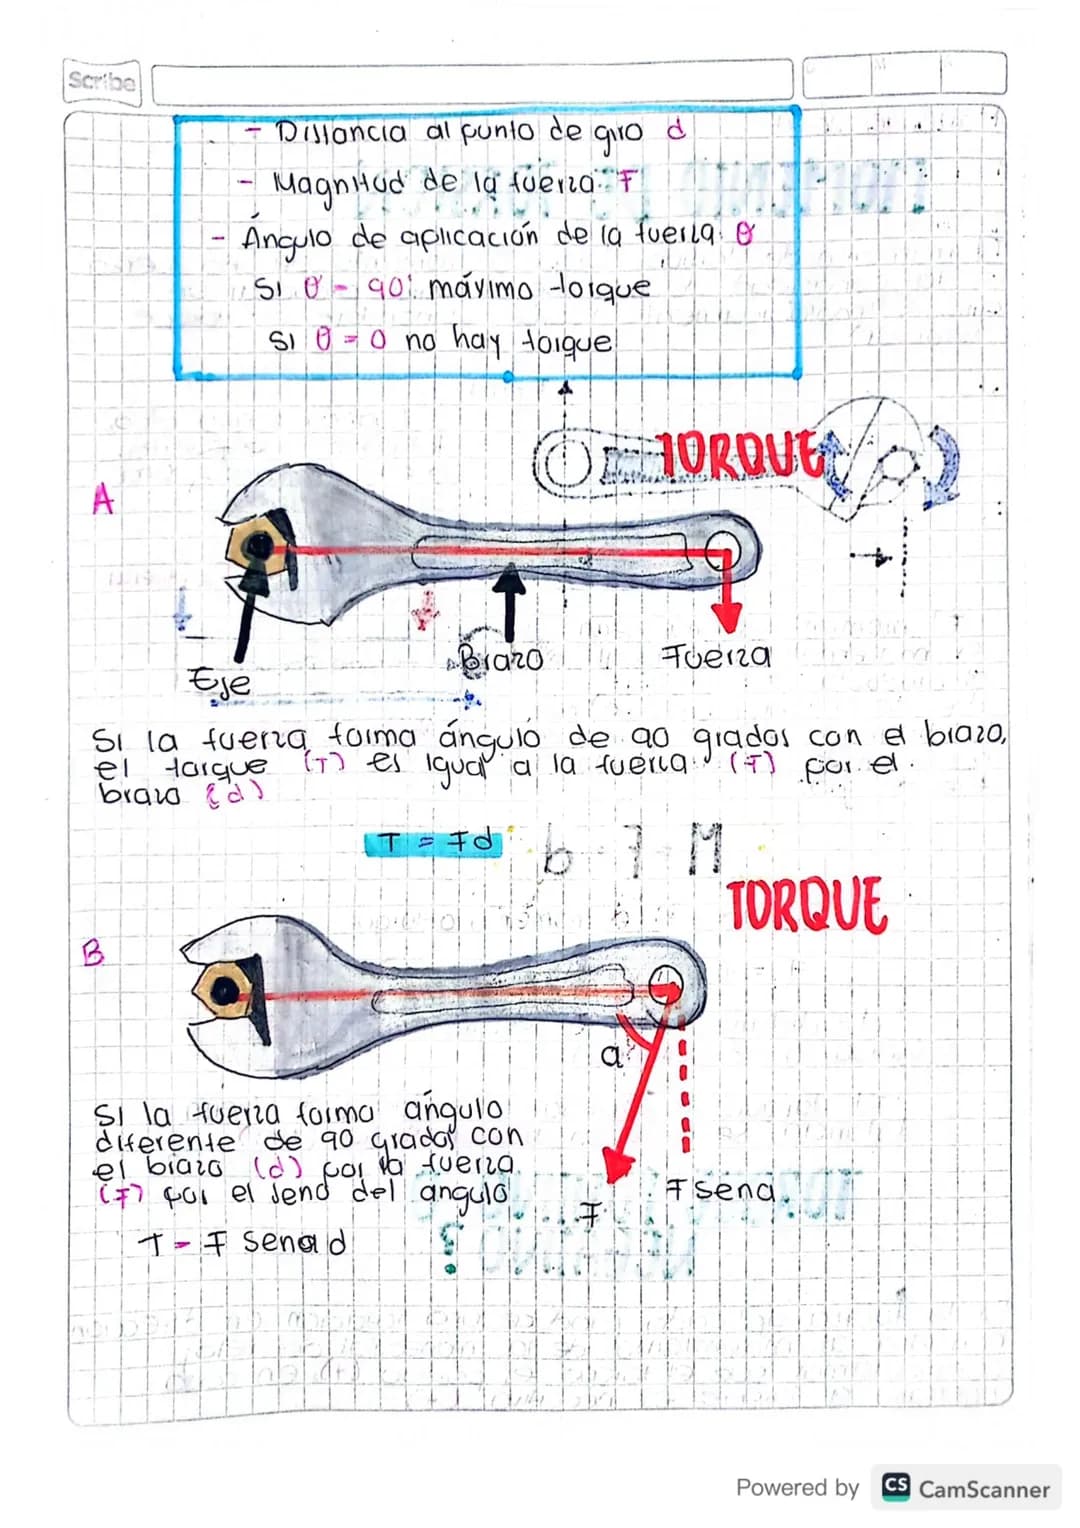 Scribe
- Distancia al punto de giro d
- Magnitud de la fuerza F
- Ángulo de aplicación de la fuerza θ
Si θ = 90° máximo torque
Si θ = 0 no hay torque
TORQUE
A
Brazo
Fuerza
Eje
Si la fuerza forma ángulo de 90 grados con el brazo,
el torque (T) es igual a la fuerza (F) por el
brazo (d)
T = Fd
TORQUE
B
a
Si la fuerza forma ángulo
diferente de 90 grados con
el brazo (d) por la fuerza
(F) por el seno del angulo
F sena
F
T = F sena d
Powered by CS CamScanner